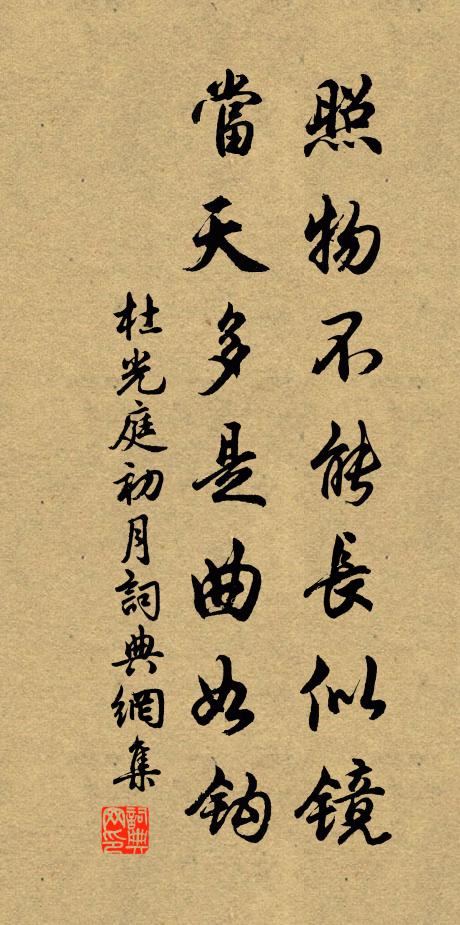 照物不能長似镜
當天多是曲如钩
杜光庭初月詞典網集
詞典网印